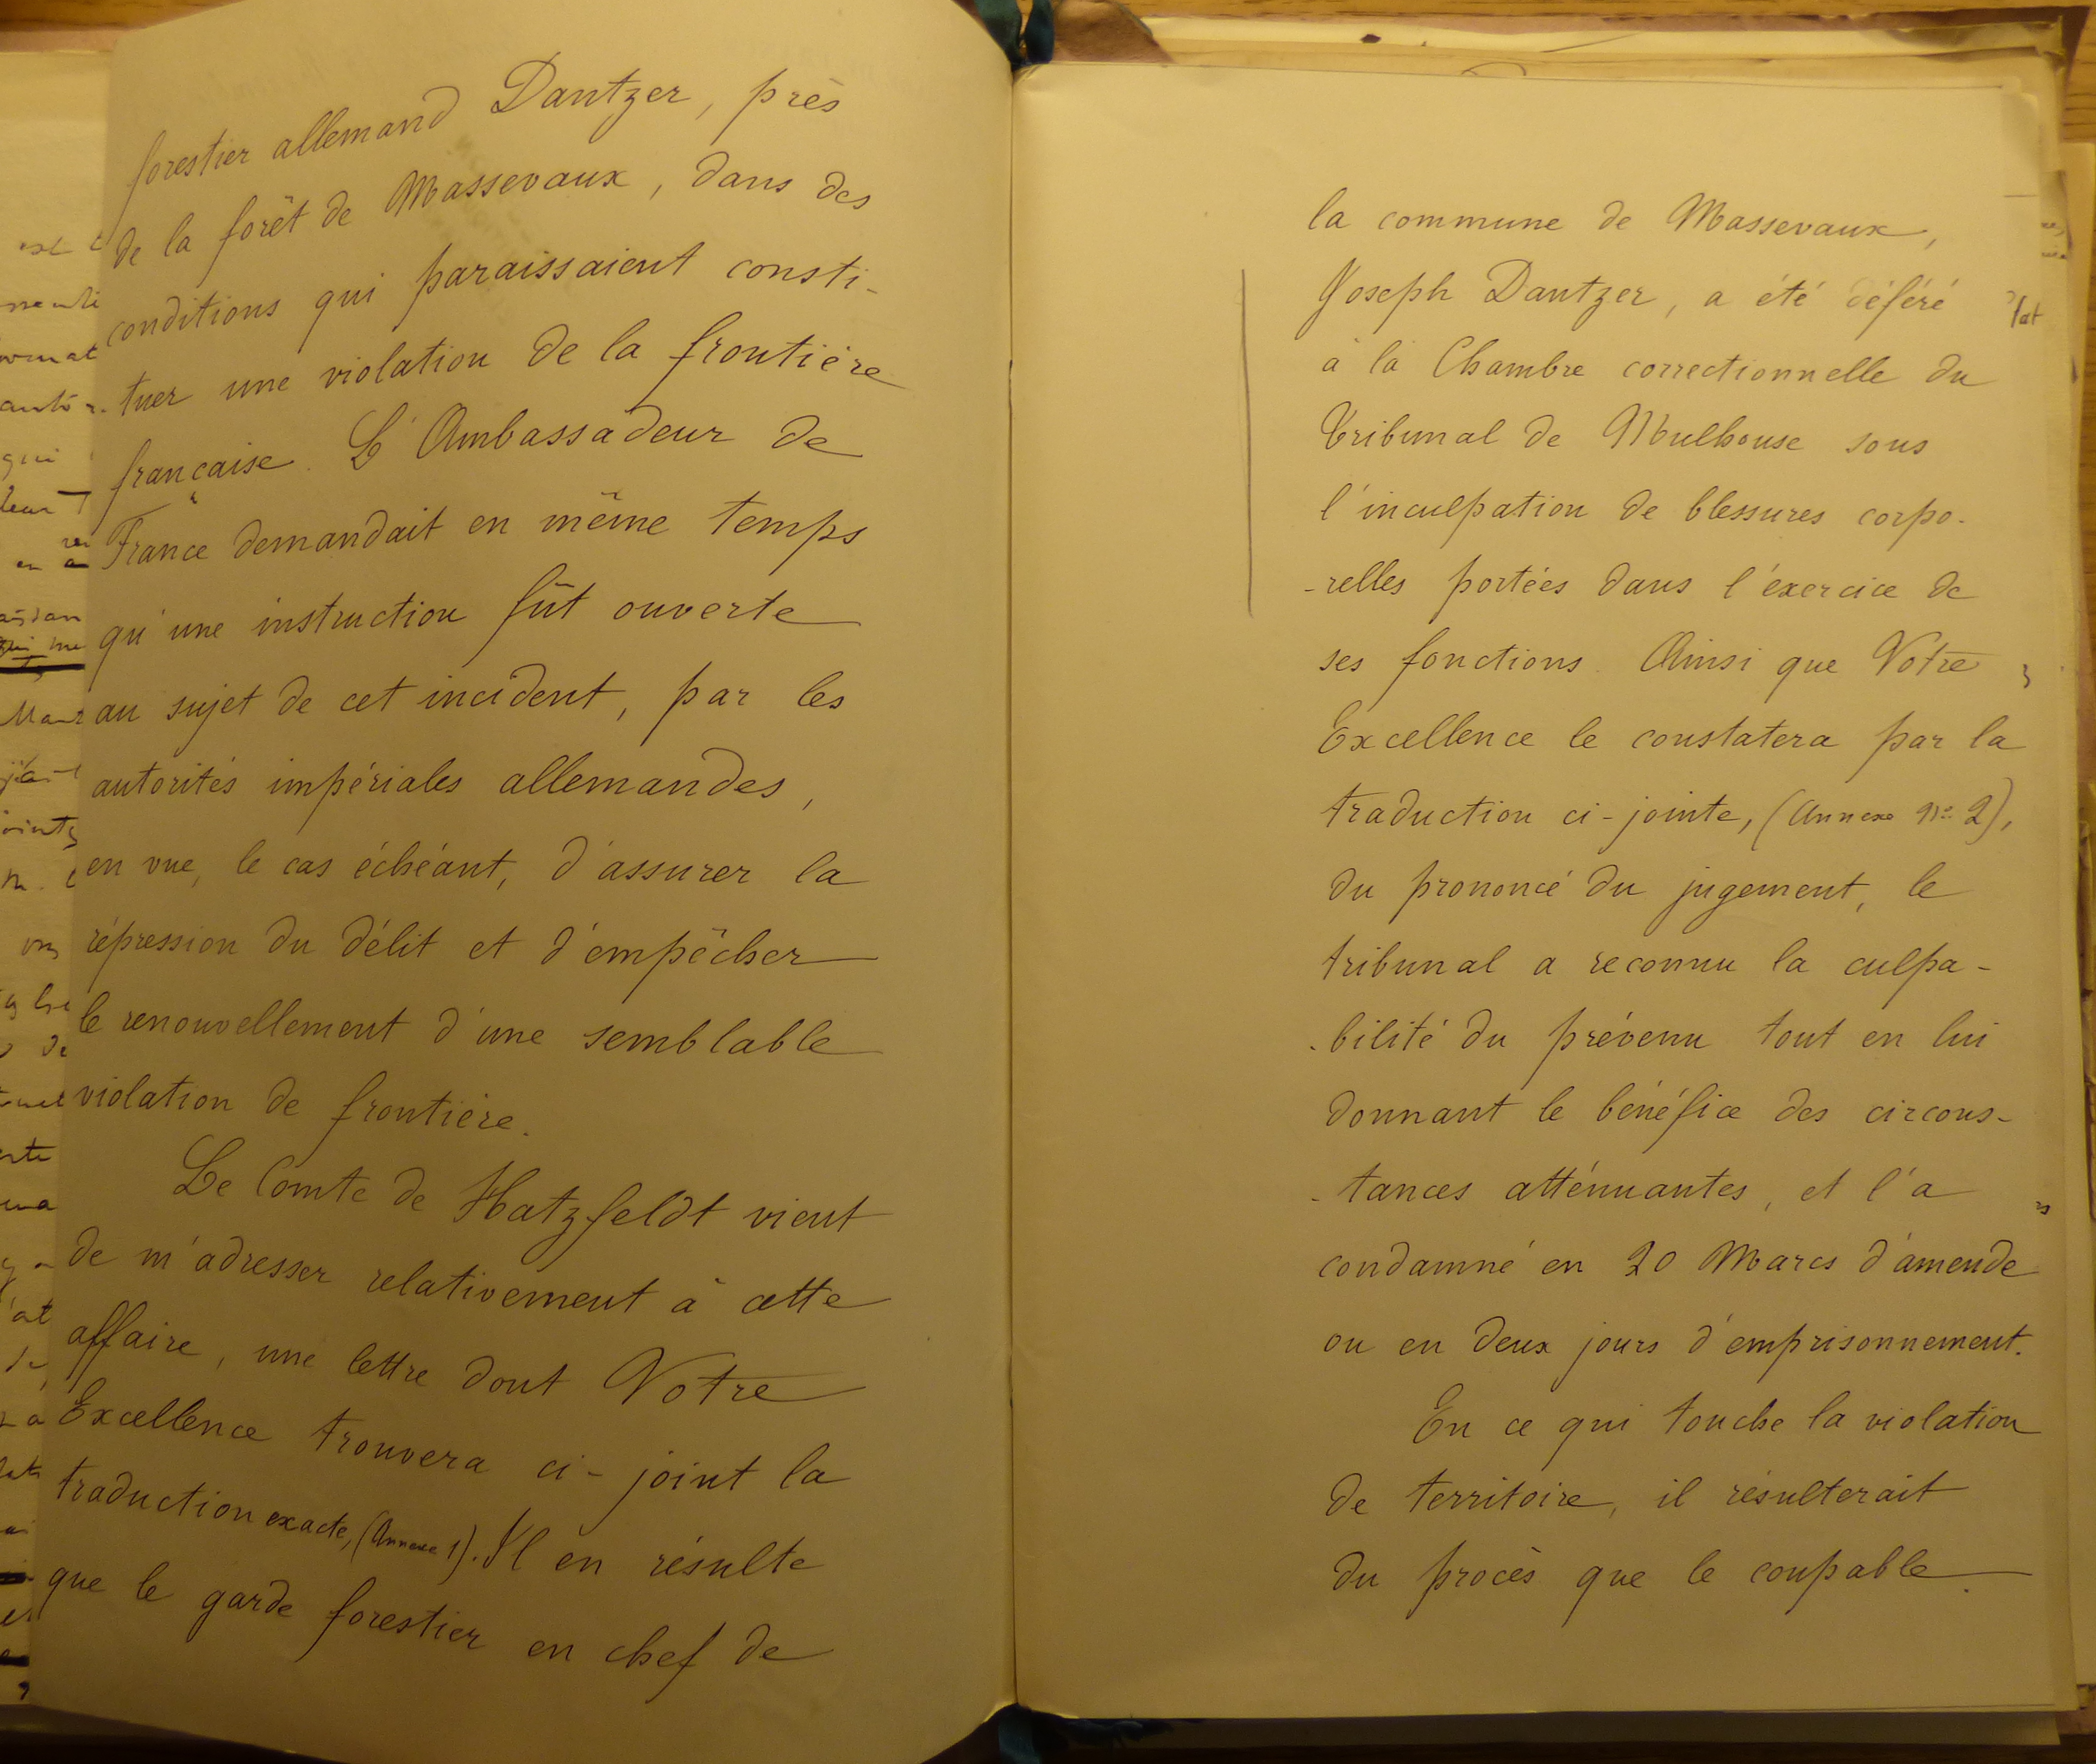 forestier allemand Dantzer, près
de la forêt de Massevaux, dans des
conditions qui paraissaient consti-
tuer une violation de la frontière
française. L'Ambassadeur de
France demandait en même temps
qu'une instruction fût ouverte
au sujet de cet incident, par les
autorités impériales allemandes,
en vue, le cas échéant, d'assurer la
répression du délit et d'empêcher
le renouvellement d'une semblable
violation de frontière.
Le Comte de Hatzfeldt vient
de m'adresser relativement à cette
affaire, une lettre dont Votre
Excellence trouvera ci-joint la
traduction exacte, (Annexe 1). Il en résulte
que le garde forestier en chef de
la commune de Massevaux,
Joseph Dantzer, a été déféré
à la Chambre correctionnelle du
Tribunal de Mulhouse sous
l'inculpation de blessures corpo-
-relles portées dans l'éxercice de
ses fonctions. Ainsi que Votre
Excellence le constatera par la
traduction ci-jointe, (Annexe No 2),
du prononcé du jugement, le
tribunal a reconnu la culpa-
-bilité du prévenu tout en lui
donnant le bénéfice des circons-
-tances atténuantes, et l'a
condamné en 20 Marcs d'amende
ou en deux jours d'emprisonnement.
En ce qui touche la violation
de territoire, il résulterait
du procès que le coupable